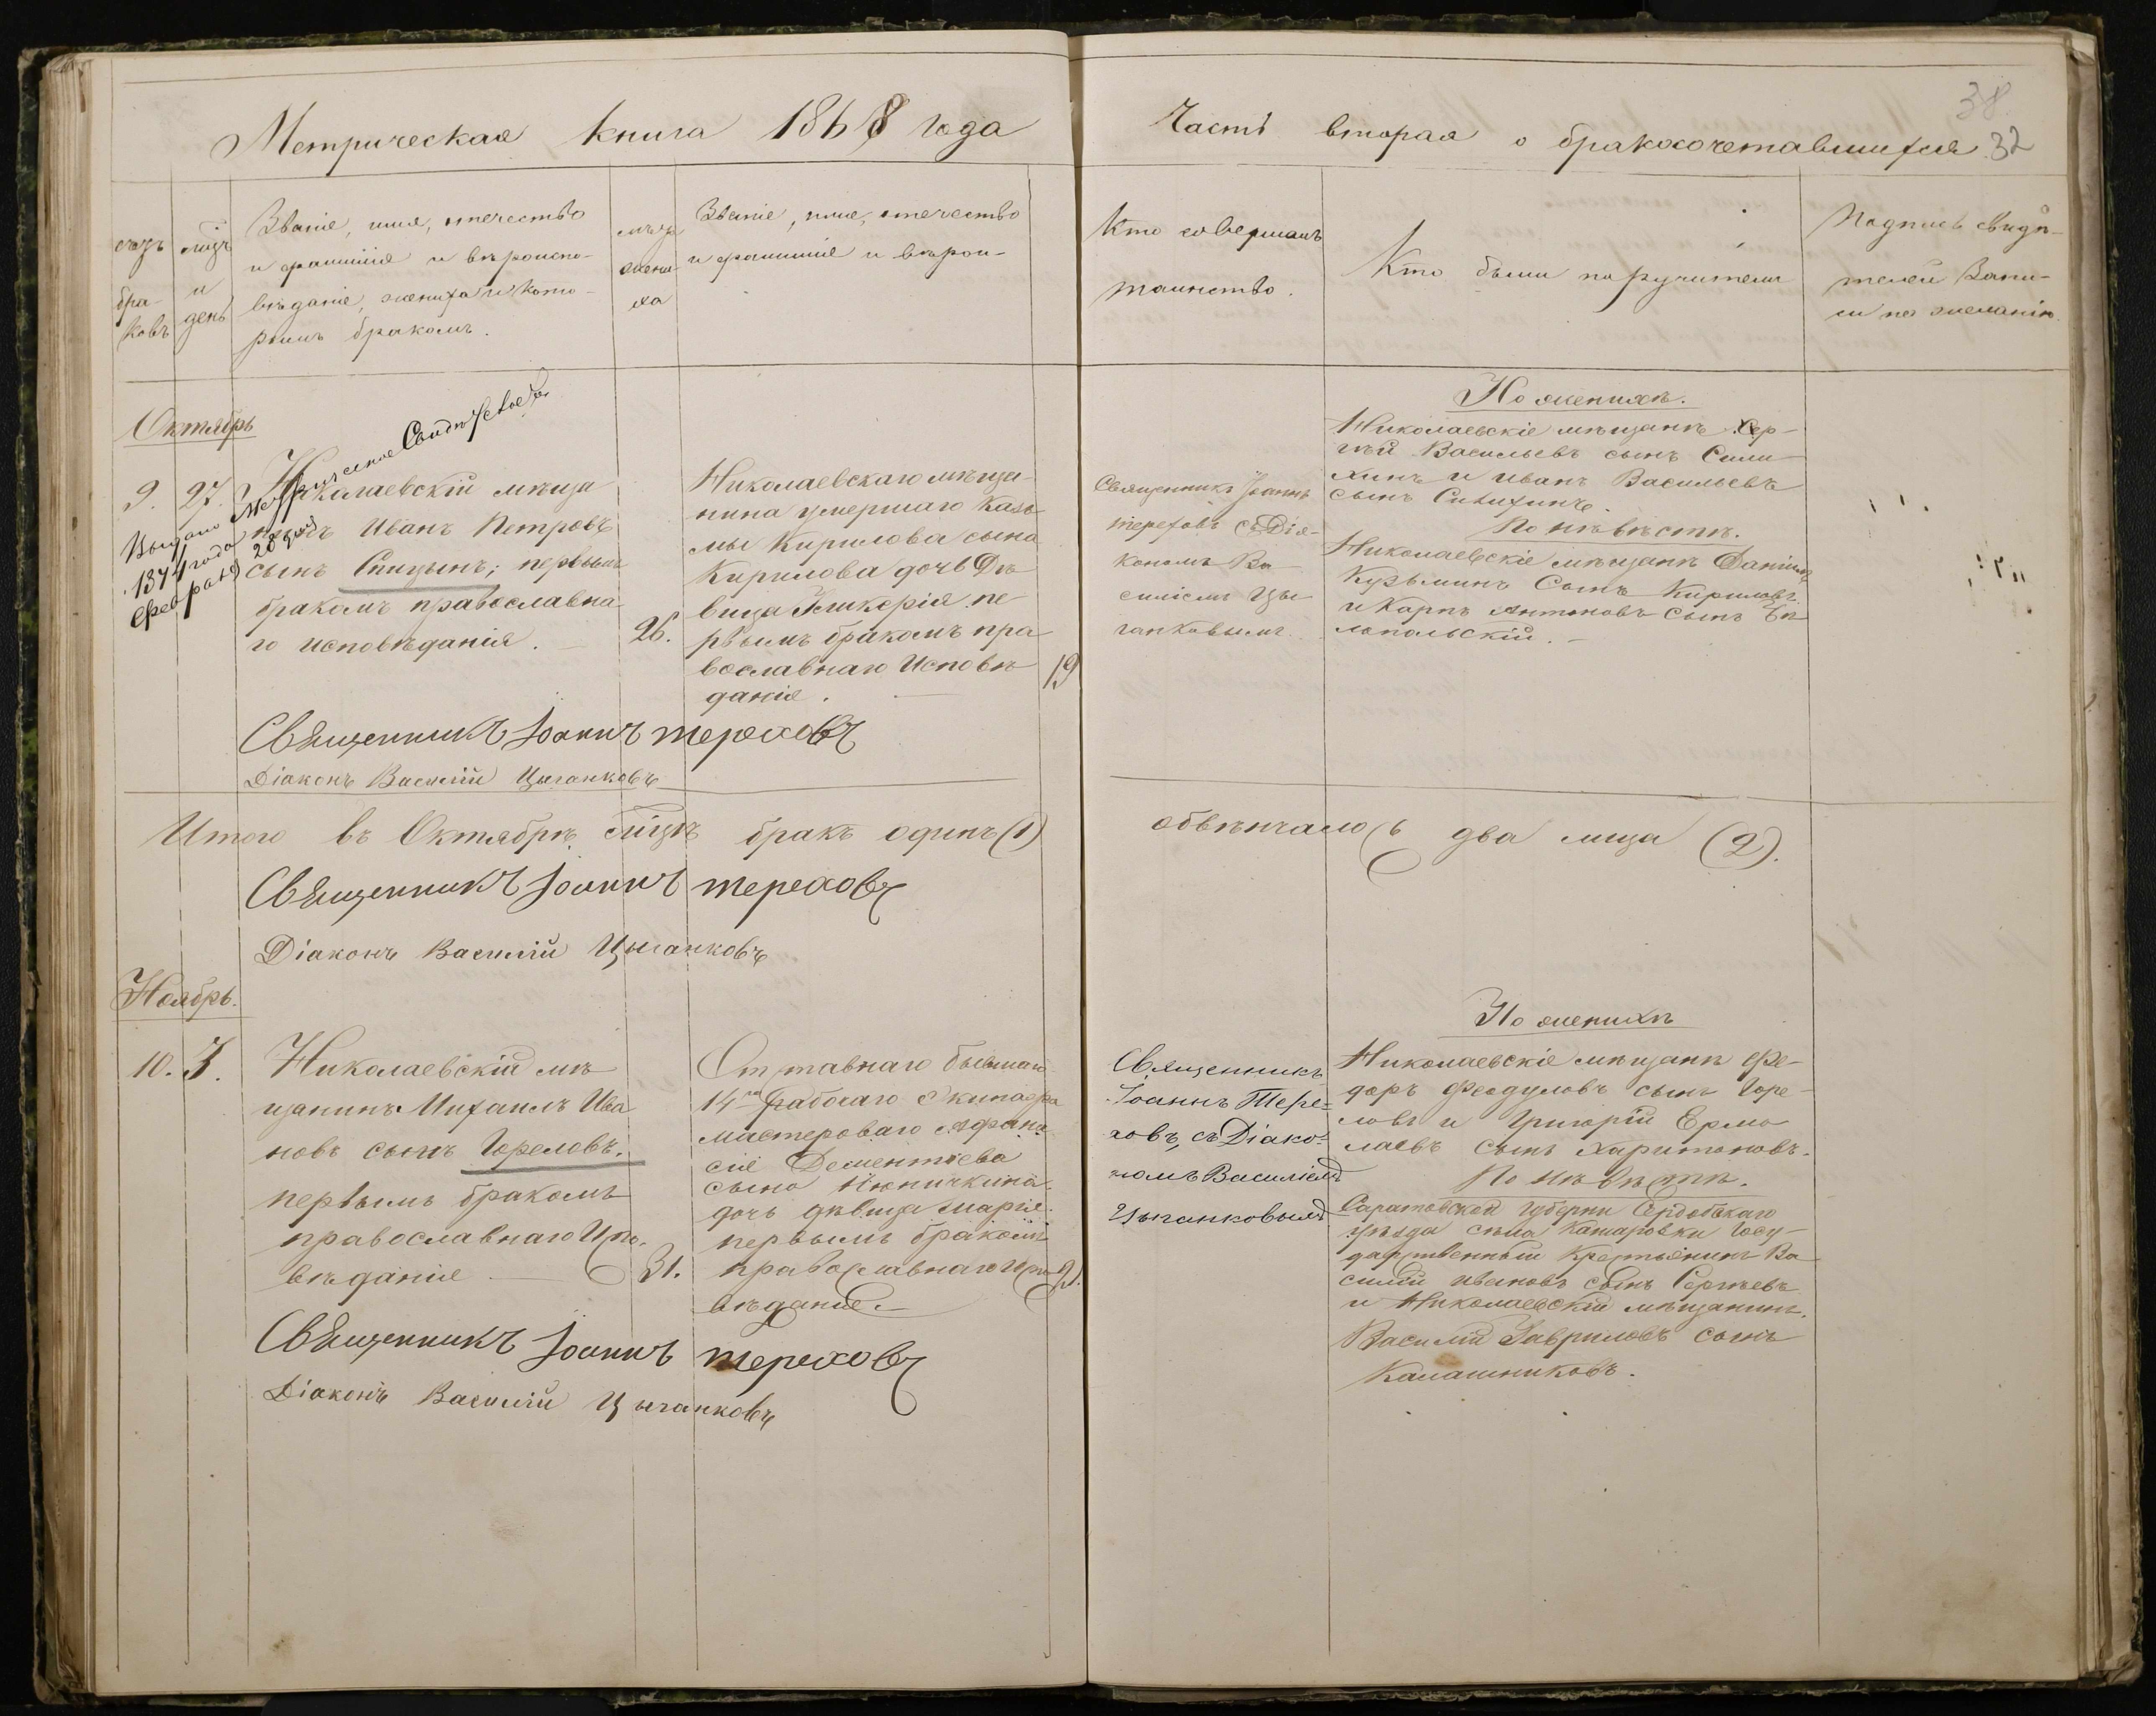 Метрическая книга 1868 года
Часть вторая о бракосочетавшихся
38.
32
бра-
ковъ
и
день
Званіе, имя, отчество
и фамилія и вѣроиспо-
вѣданіе жениха и кото-
рымъ бракомъ.
жени-
ха
Званіе, имя, отчество
и фамилія и вѣрои-
Кто совершалъ
таинство.
Кто были поручители
Подпись свидѣ-
телей запи-
си по желанію.
Октябрь
9. 27.
Выдано Метрическое
1874 года
Февраля 28 дня
Николаевскій мѣща
нинъ Иванъ Петровъ
сынъ Спицынъ; первымъ
бракомъ православна
го исповѣданія.
26.
Николаевскаго мѣща-
нина умершаго Казь
мы Кирилова сына
Кирилова дочь Дѣ
вица Гликерія пе
рвымъ бракомъ пра
вославнаго Исповѣ
данія.
19
Священникъ Іоаннъ
Тереховъ съ Діа-
кономъ Ва
силіемъ Цы
ганковымъ.
По женихѣ.
Николаевскіе мѣщане Сер-
гѣй Васильевъ сынъ
и Иванъ Васильевъ
сынъ
По невѣстѣ.
Николаевскіе мѣщане Даніилъ
Кузьминъ Сынъ Кириловъ
и Карпъ Антоновъ Сынъ
Священникъ Іоаннъ Тереховъ
Діаконъ Василій Цыганковъ
Итого въ Октябрѣ мѣсцѣ бракъ одинъ (1)
обвѣнчалось два лица (2).
Священникъ Іоаннъ Тереховъ
Діаконъ Василій Цыганковъ
Ноябрь.
10. 3.
Николаевскій мѣ
щанинъ Михаилъ Ива
новъ сынъ Гореловъ.
первымъ бракомъ
православнаго Испо-
вѣданія
31.
Отставнаго бывшаго
14го рабочаго Экипажа
мастероваго Афана
сія Дементьева
сына
дочь дѣвица Марія.
первымъ бракомъ
православнаго Испо
вѣданія.
21.
Священникъ
Іоаннъ Тере=
ховъ, съ Діако=
номъ Василіемъ
Цыганковымъ
По женихѣ
Николаевскіе мѣщане Фе-
доръ Федуловъ сынъ Горе-
ловъ и Григорій Ермо
лаевъ сынъ Харитоновъ.
По невѣстѣ.
Саратовской губерни Сердобскаго
уѣзда села Комаровки Госу-
дарственный Крестьянинъ Ва
силій Ивановъ сынъ Сергѣевъ
и Николаевскій мѣщанинъ.
Василій Гавриловъ сынъ
Калашниковъ.
Священникъ Іоаннъ Тереховъ
Діаконъ Василій Цыганковъ